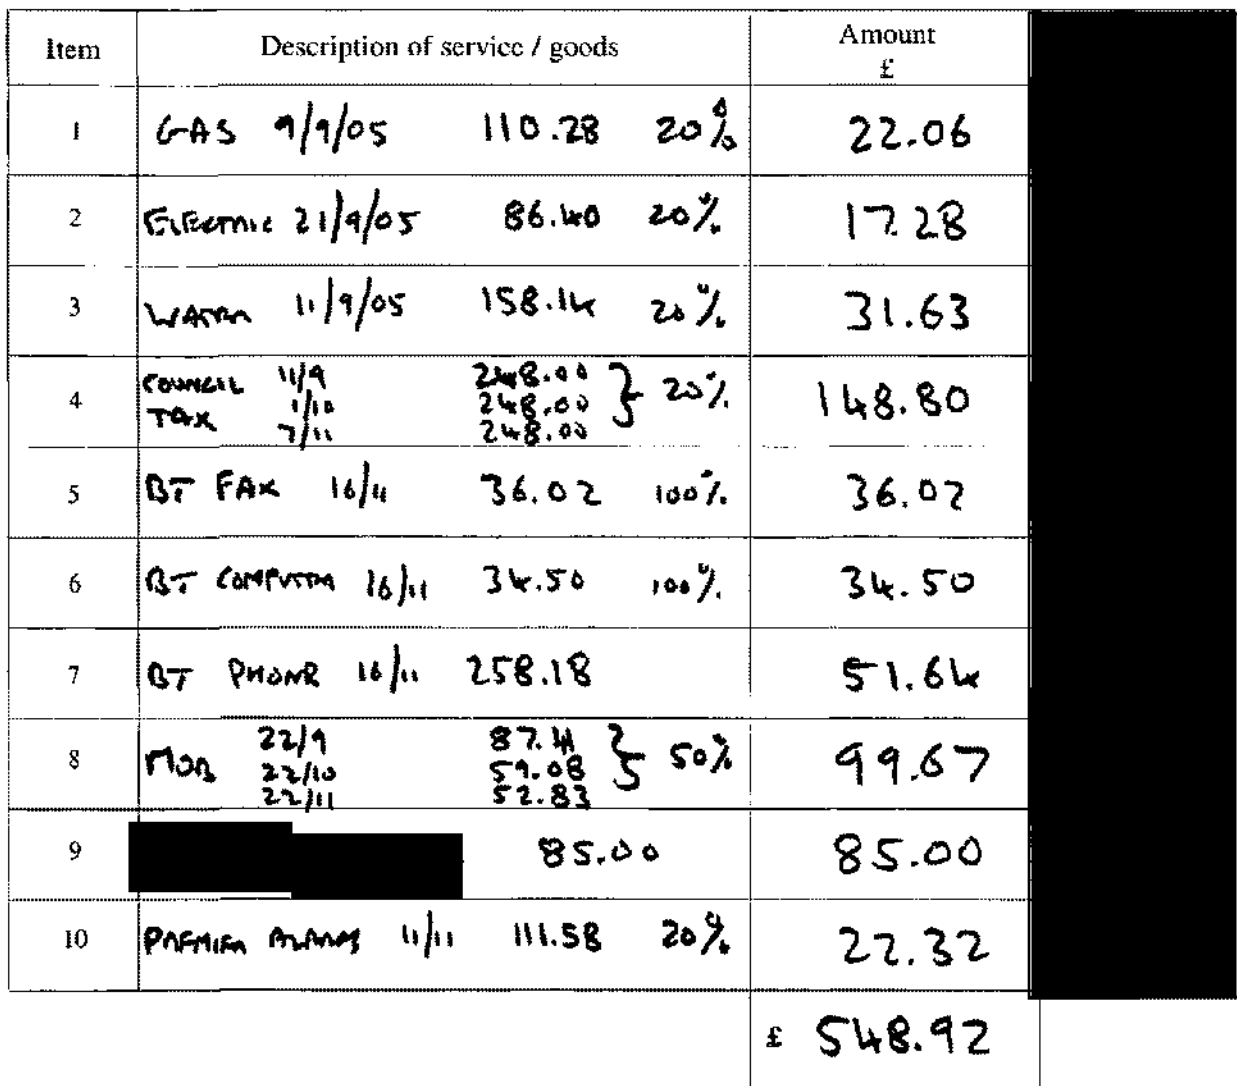 Item Description of service / goods Amount £
1 GAS 9/9/05 110.28 20% 22.06
2 ELECTRIC 21/9/05 86.40 20% 17.28
3 WATER 11/9/05 158.14 20% 31.63
4 COUNCIL TAX 11/9 248.00 20% 148.80
1/10 248.00
7/11 248.00
5 BT FAX 16/11 36.02 100% 36.02
6 BT COMPUTER 16/11 34.50 100% 34.50
7 BT PHONE 16/11 258.18 51.64
8 MOB 22/9 87.41 50% 99.67
22/10 59.08
22/11 52.83
9 85.00 85.00
10 PREMIER ALARMS 11/11 111.58 20% 22.32
£ 548.92